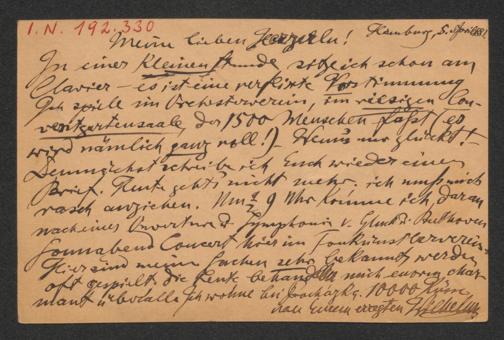 I. N. 192.330
Hamburg, 5. April 88
Meine lieben Herzerln!
In einer kleinen Stunde sitze ich schon am
Clavier – es ist eine verflixte Vorstimmung
Ich spiele im Orchesterverein, im riesigen Con-
ventgartensaale, der 1500 Menschen faßt (es
wird nämlich ganz voll!) – Wenns nur glückt! –
Demnächst schreibe ich Euch wieder einen
Brief. Heute gehts nicht mehr, ich muß mich
rasch anziehen. Um ½ 9 Uhr komme ich daran
nach einer Ouverture & Symphonie v. Gluck & Beethoven
Sonnabend Concert hier im Tonkünstlerverein.
Hier sind meine Sachen sehr bekannt, werden
oft gespielt, die Leute behandeln mich enorm char-
mant überall. Ich wohne bei 10000 Küsse
von Eurem erregten Wilhelm